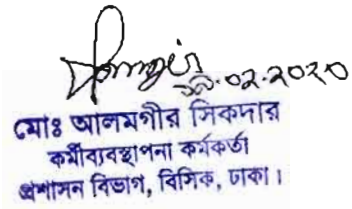 ০২.২০২০
মোঃ আলমগীর সিকদার
কর্মীব্যবস্থাপনা কর্মকর্তা
প্রশাসন বিভাগ, বিসিক, ঢাকা।